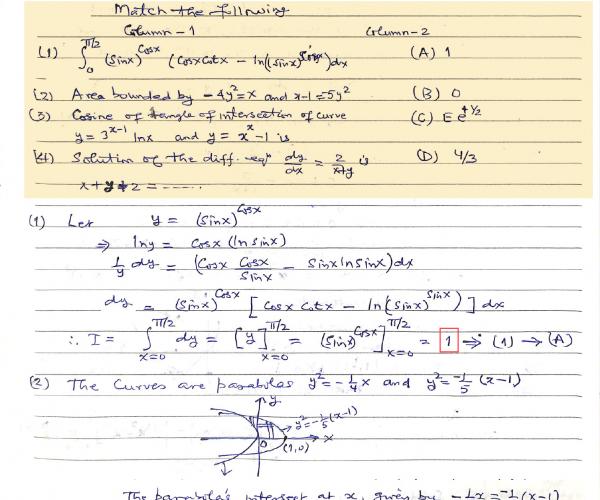 Match the following
Column-1 Column-2
(1) ∫₀^{π/2} (sinx)^{cosx} (cosx cotx - ln(sinx)^{sinx}) dx (A) 1
(2) Area bounded by -4y²=x and x-1=-5y² (B) 0
(3) Cosine of angle of intersection of curve (C)
y = 3^{x-1} lnx and y = x^x - 1 is
(4) Solution of the diff. eqⁿ dy/dx = 2/(x+y) is (D) 4/3
x+y+2 = ------
(1) Let y = (sinx)^{cosx}
⇒ lny = cosx (ln sinx)
1/y dy = (cosx cosx/sinx - sinx ln sinx) dx
dy = (sinx)^{cosx} [cosx cotx - ln(sinx)^{sinx}] dx
∴ I = ∫_{x=0}^{π/2} dy = [y]_{x=0}^{π/2} = (sinx)^{cosx}]_{x=0}^{π/2} = 1 ⇒ (1) → (A)
(2) The curves are parabolas y² = -1/4 x and y² = -1/5 (x-1)
y
y² = -1/5 (x-1)
O x
(1,0)
The parabolas intersect at x, given by -1/4 x = -1/5 (x-1)